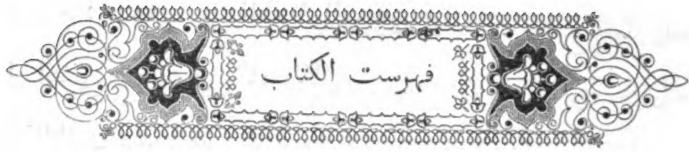 فهرست الكتاب